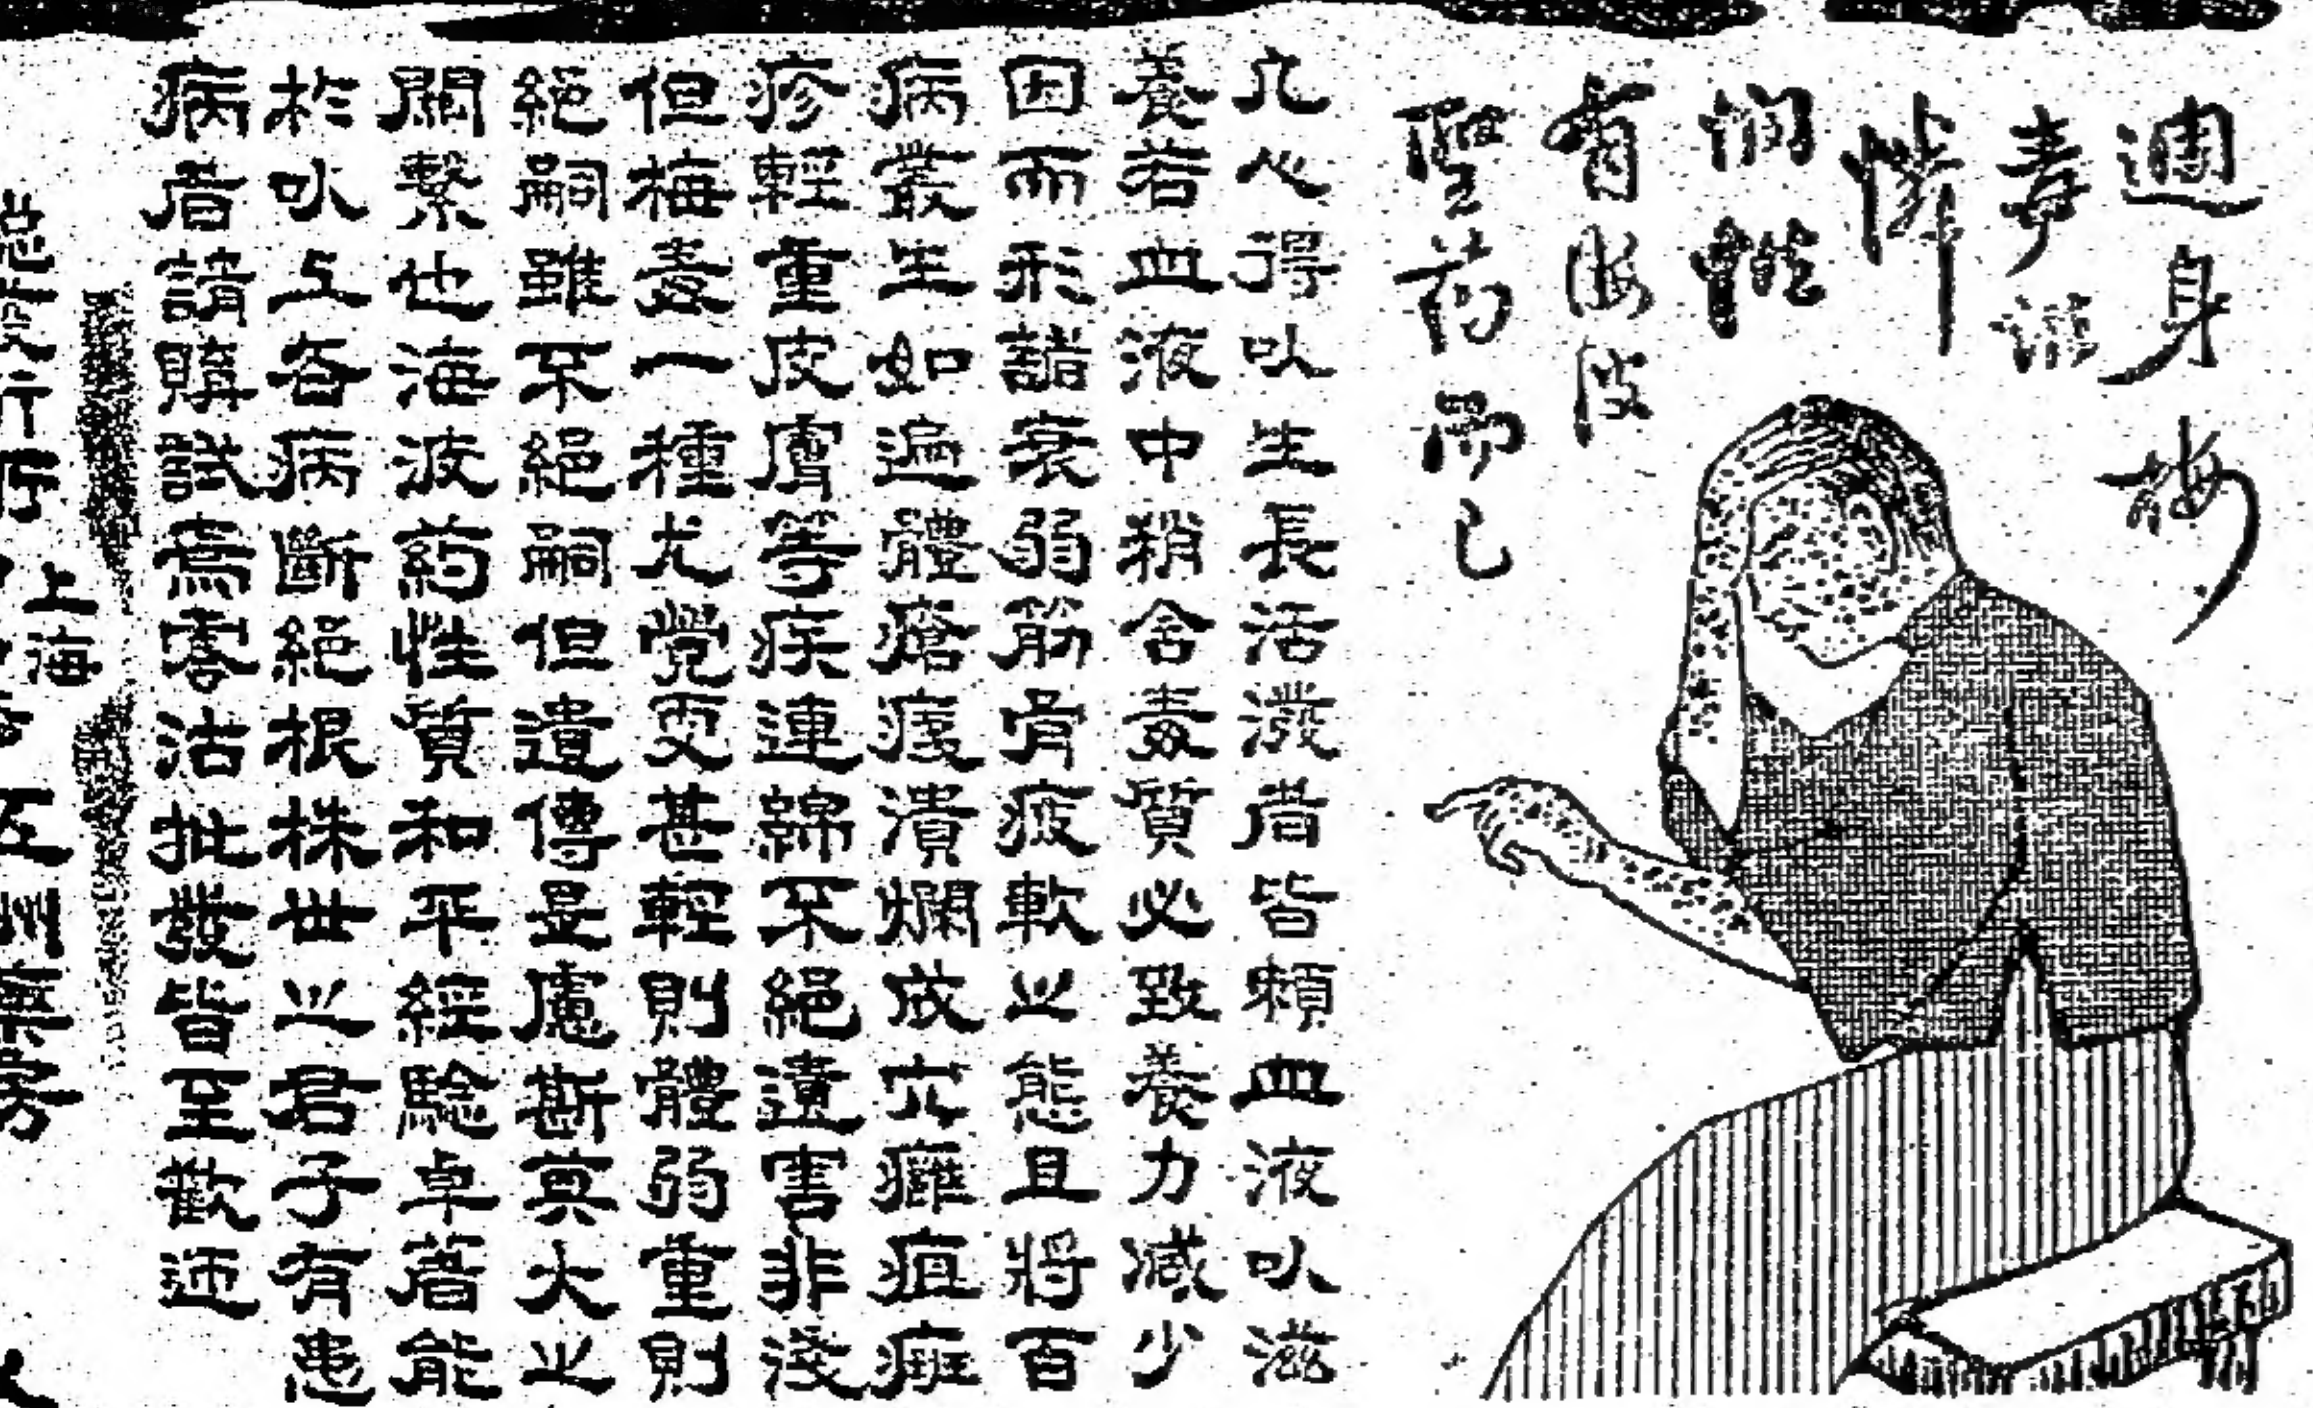 週身梅
毒誰
憐
憫惟
有海波
聖药而已
凡人得以生長活潑者皆賴血液以滋
養若血液中稍含毒質必致養力减少
因而形諸衰弱筋骨疲軟之態且將百
病叢生如遍體瘡痍潰爛成穴癰疽癍
疹輕重皮膚等疾連綿不絕遺害非淺
但梅毒一種尤覺更甚輕則體弱重則
絕嗣雖不絕嗣但遺傳是慮斯莫大之
關繫也海波药性質和平經驗卓著能
於以上各病斷絕根株世之君子有患
病者請購試焉零沽批發皆至歡迎
上海
總發行所 五洲藥房